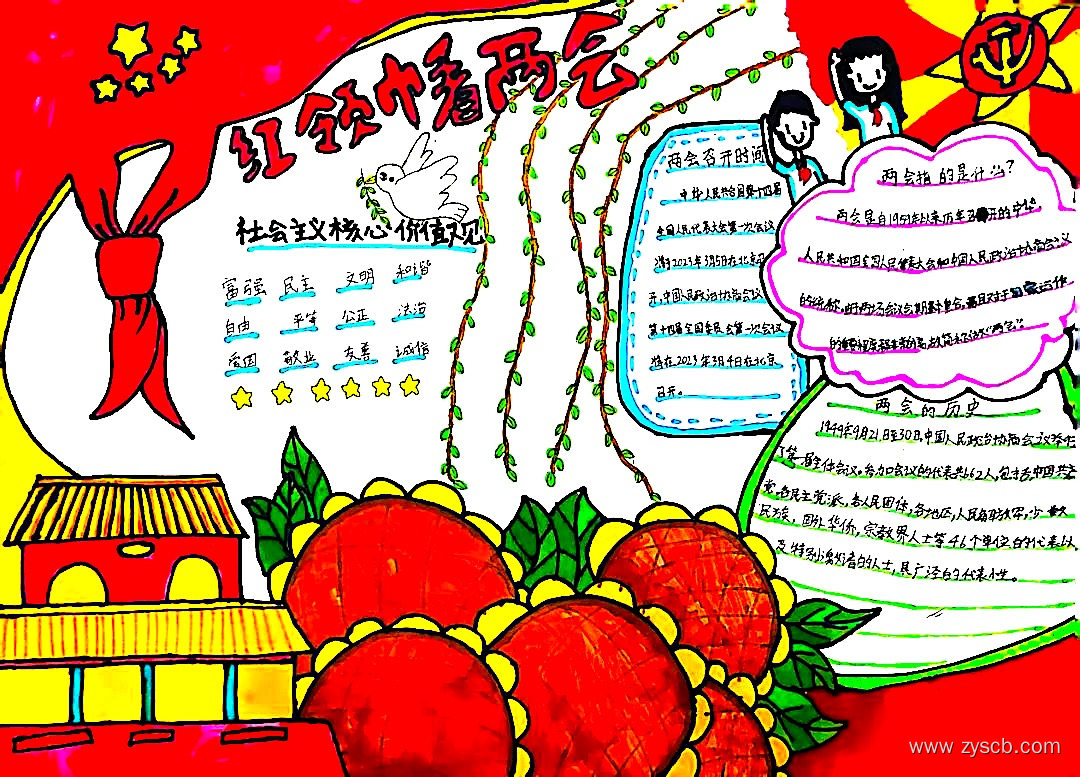 红领巾看两会
社会主义核心价值观
富强 民主 文明 和谐
自由 平等 公正 法治
爱国 敬业 友善 诚信
两会召开时间
中华人民共和国第十四届
全国人民代表大会第一次会议
将于2023年3月5日在北京召
开,中国人民政治协商会议
第十四届全国委员会第一次会议
将在2023年3月4日在北京
召开。
两会指的是什么?
两会是自1959年以来历年召开的中华
人民共和国全国人民代表大会和中国人民政治协商会议
的统称,由于两场会议会期基本重合,而且对于国家运作
的重要程度都非常的高,故简称做"两会"。
两会的历史
1949年9月21日至30日,中国人民政治协商会议举行
了第一届全体会议。参加会议的代表共662人,包括中国共产
党,各民主党派,各人民团体,各地区,人民解放军,少数
民族,国外华侨,宗教界人士等46个单位的代表以
及特别邀请的人士,具广泛的代表性。
www.zyscb.com